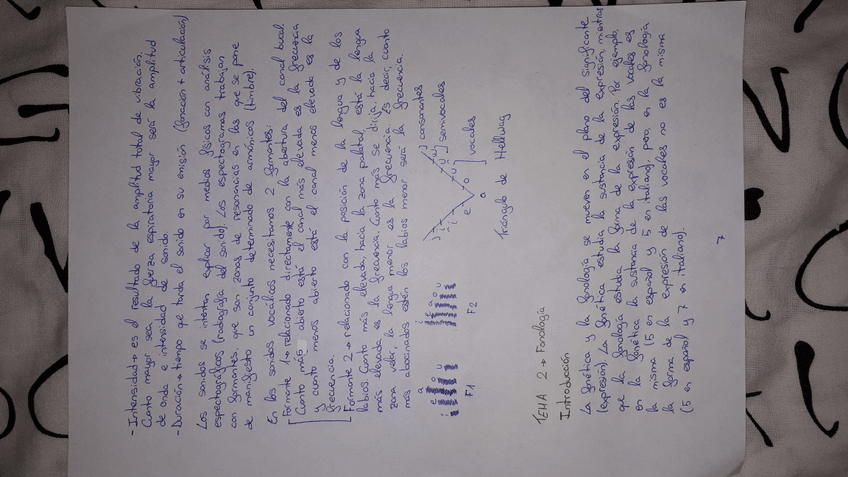 - Intensidad → es el resultado de la amplitud total de vibración.
Cuanto mayor sea la fuerza espiratoria mayor será la amplitud
de onda e intensidad de sonido.
- Duración → tiempo que tarda el sonido en su emisión (fonación + articulación)
Los sonidos se intentan explicar por medios físicos con análisis
espectográficos (radiografía del sonido). Los espectogramas trabajan
con formantes, que son zonas de resonancias en las que se pone
de manifiesto un conjunto determinado de armónicos (timbre).
En los sonidos vocálicos necesitamos 2 formantes:
Formante 1 → relacionado directamente con la abertura del canal bucal.
Cuanto más abierto está el canal más elevada es la frecuencia
y cuanto menos abierto está el canal menos elevada es la
frecuencia.
Formante 2 → relacionado con la posición de la lengua y de los
labios. Cuanto más elevada hacia la zona palatal está la lengua
más elevada es la frecuencia. Cuanto más se dirija hacia la
zona velar la lengua menor es la frecuencia. Es decir, cuanto
más abocinados estén los labios menor será la frecuencia.
a
e o
i u
F1
i e a o u
F2
consonantes
semivocales
vocales
i u
e o
a
Triángulo de Hellwag
TEMA 2 → Fonología
Introducción
La fonética y la fonología se mueven en el plano del significante
(expresión). La fonética estudia la sustancia de la expresión, mientras
que la fonología estudia la forma de la expresión. Por ejemplo,
en la fonética la sustancia de la expresión de las vocales es
la misma (5 en español y 5 en italiano) pero, en la fonología
la forma de la expresión de las vocales no es la misma
(5 en español y 7 en italiano).
7